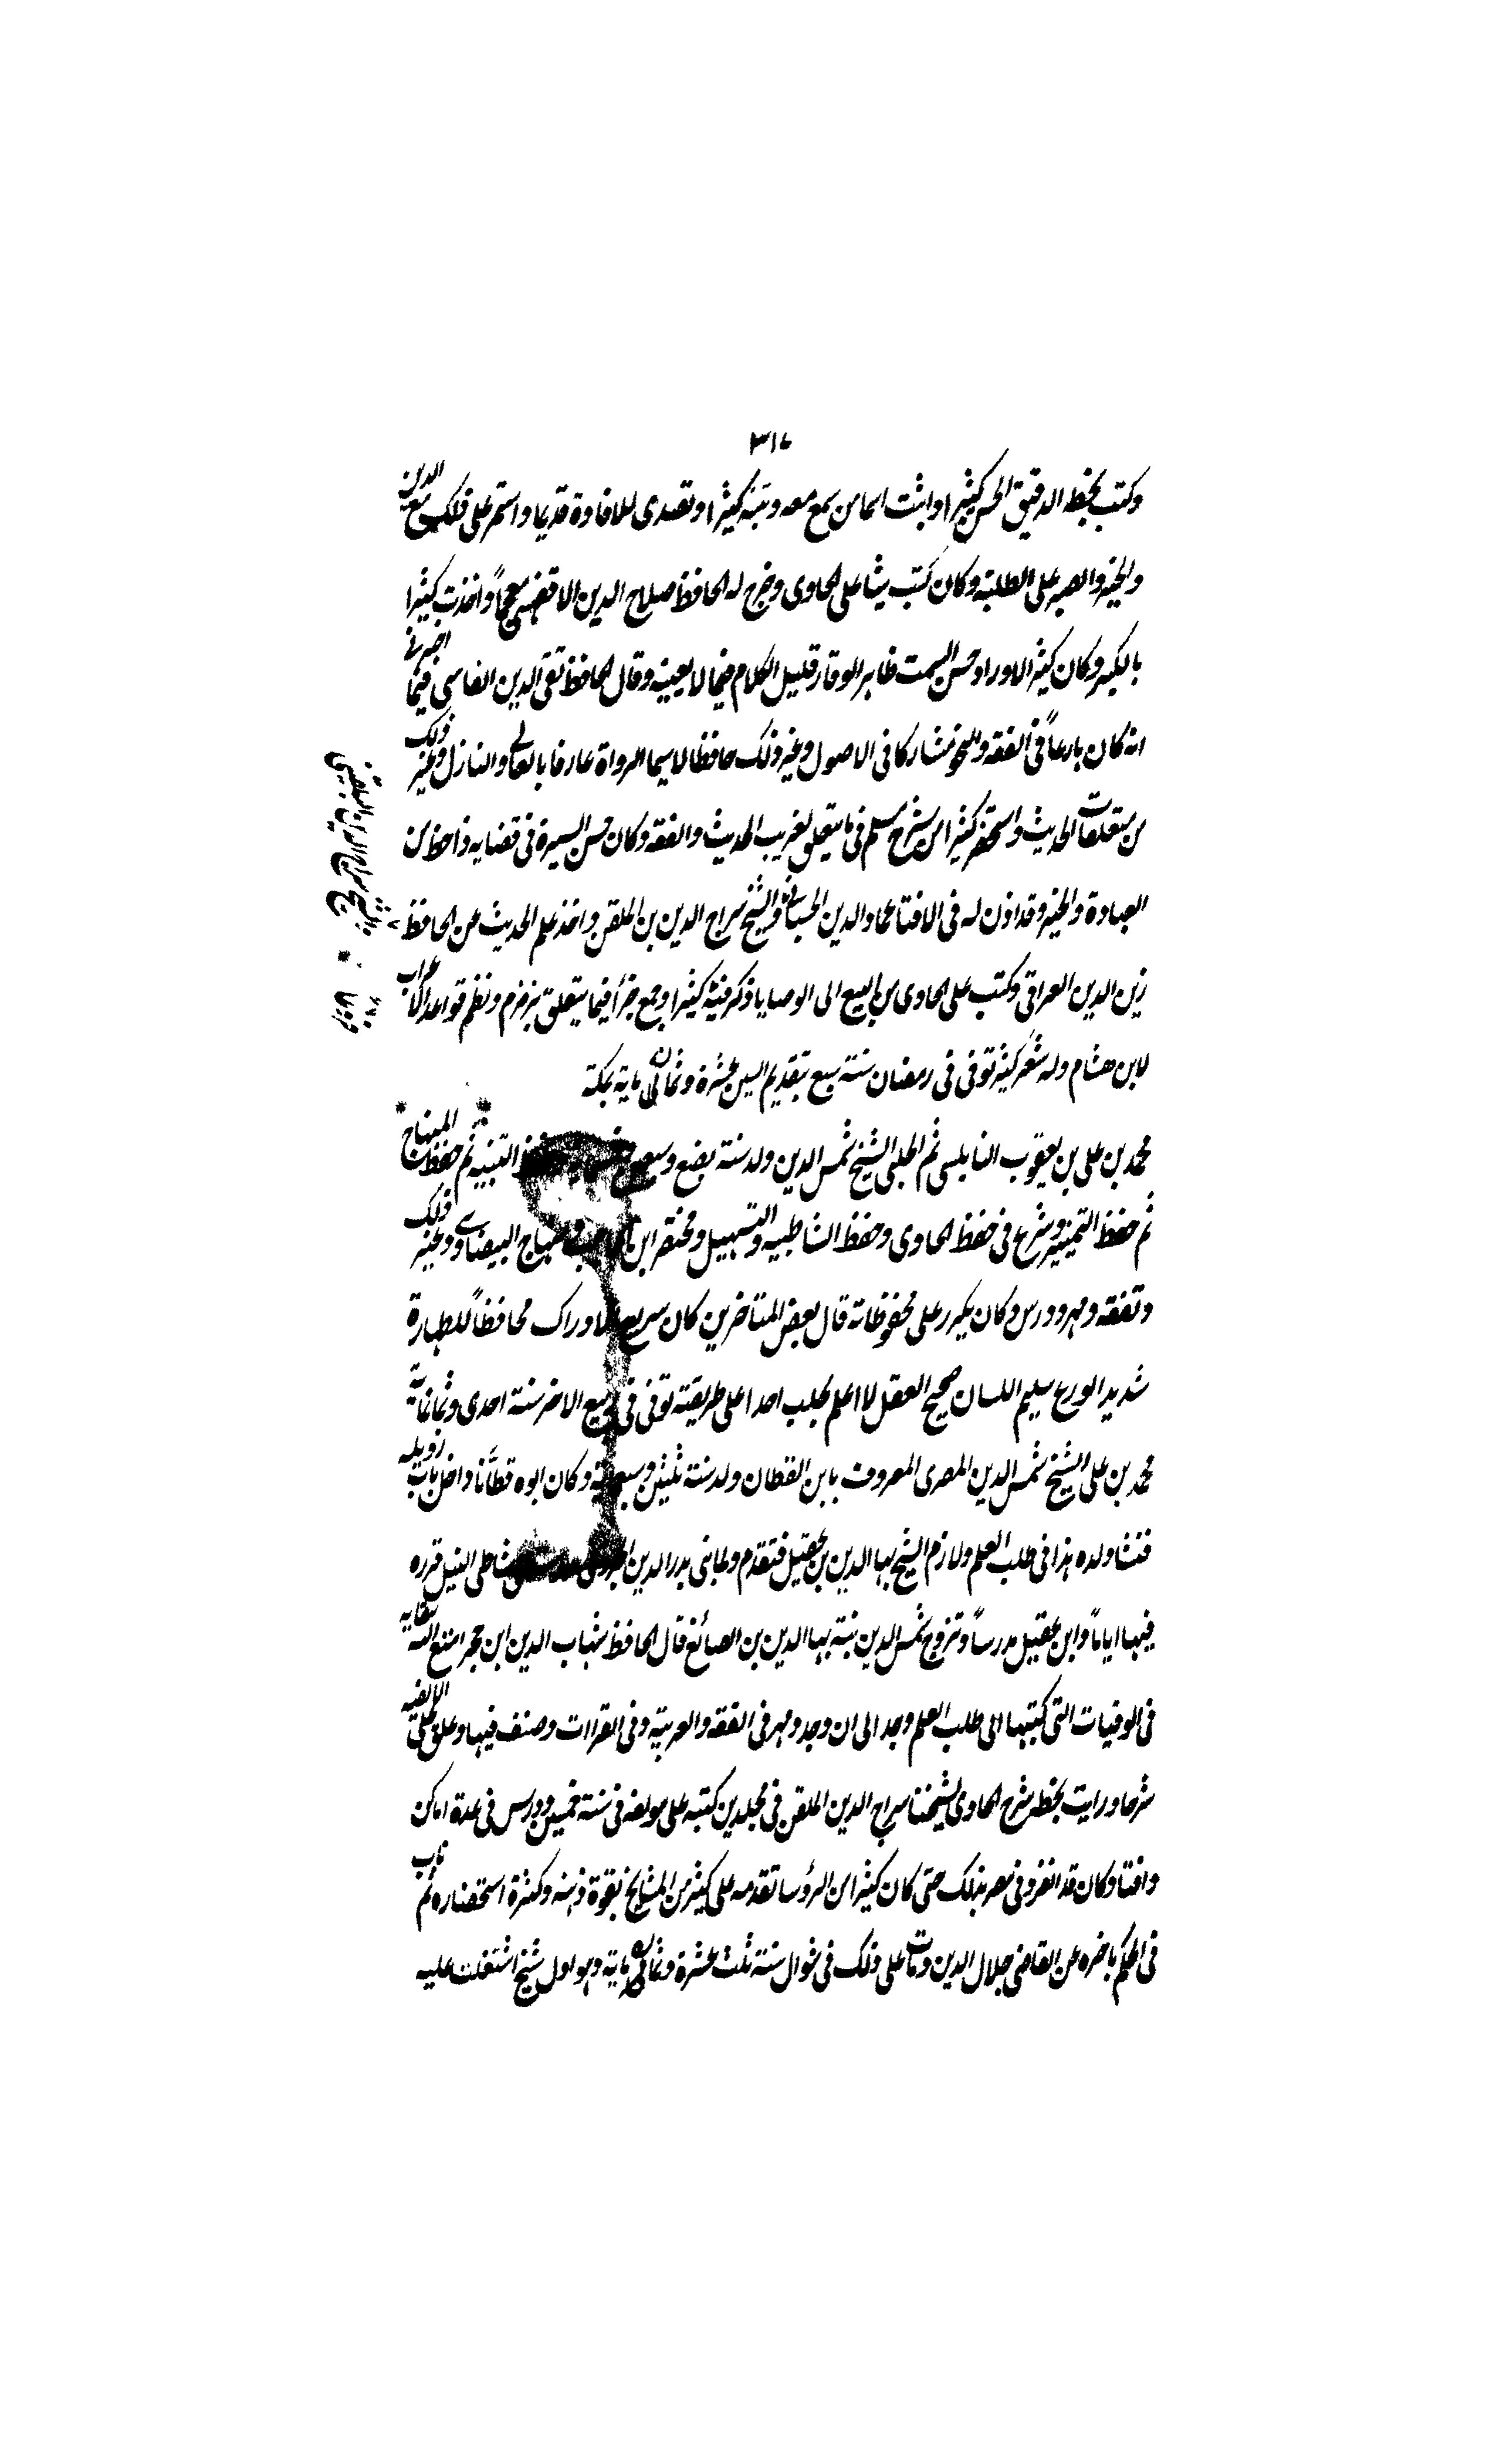 ٣١٤
وكتب بخطه الدقيق الحسن كثيرا واثبت اسما من سمع معه وتبنه كثيرا وتصدى للافادة قديما واستمر على ذلك مع الدين
والخير والصبر على الطلبة وكان كتب شيئا على الحاوى وخرج له الحافظ صلاح الدين الاقفهسى معجماً واخذت كثيرا
بالكبير وكان كثير الاوراد حسن السمت ظاهر الوقار قليل الكلام فيما لا يعنيه وقال الحافظ تقى الدين الفاسى فيما اخبرنى
انه كان بارعاً فى الفقه والنحو مشاركا فى الاصول وغير ذلك حافظا لاسيما الرواة عارفا بالعالى والنازل وغير ذلك
من متعلقات الحديث واستحضر كثيرا من شرح مسلم فى ما يتعلق بغريب الحديث والفقه وكان حسن السيرة فى قضايه ذا حظ من
العبادة والخير وقد اذن له فى الافتا عماد الدين الحسبانى والشيخ سراج الدين بن الملقن واخذ علم الحديث عن الحافظ
زين الدين العراقى وكتب على الحاوى من البيع الى الوصايا ذكر فيه كثيرا وجمع جزأ فيما يتعلق بزمزم ونظم قواعد الاعراب
لابن هشام وله شعر كثير توفى فى رمضان سنة سبع بتقديم السين عشرة وثمان ماية بمكة
محمد بن على بن يعقوب النابلسى ثم الحلبى الشيخ شمس الدين ولد سنة بضع وسبعماية حفظ التنبيه ثم حفظ المنهاج
ثم حفظ التمييز وشرع فى حفظ الحاوى وحفظ الشاطبيه والتسهيل ومختصر ابن الحاجب ومنهاج البيضاوى وغير ذلك
وتفقه ومهر ودرس وكان يكرر على محفوظاته قال بعض المتاخرين كان سريع الادراك محافظاً للطهارة
شديد الورع سليم اللسان صحيح العقل لا اعلم بحلب احدا على طريقته توفى فى ربيع الاخر سنة احدى وثمانماية
محمد بن على الشيخ شمس الدين المصرى المعروف بابن القطان ولد سنة ثلثين وسبعماية وكان ابوه قطانا داخل باب زويله
فنشا ولده هذا فى طلب العلم ولازم الشيخ بها الدين بن عقيل فتقدم ولما بنى بدر الدين الخروبى مدرسته على شاطى النيل قرره
فيها اياماً وابن عقيل مدرساً وتزوج شمس الدين بنته بها الدين بن الصائغ قال الحافظ شهاب الدين ابن حجر امتع الله ببقايه
فى الوفيات التى كتبها الى طلب العلم وجد الى ان وجد ومهر فى الفقه والعربية وفى القراات وصنف فيها وعلق على الالفيه
شرحا ورايت بخطه شرح الحاوى لشيخنا سراج الدين الملقن فى مجلدين كتبه على مولفه فى سنة خمسين ودرس فى عدة اماكن
وافتا وكان قد انفرد فى مصر بذلك حتى كان كثيرا من الرؤسا تقدمه على كثير من المشايخ بقوة ذهنه وكثرة استحضاره ثم ناب
فى الحكم باخره عن القاضى جلال الدين ومات على ذلك فى شوال سنة ثلث عشرة وثمان ماية وهو اول شيخ اشتغلت عليه